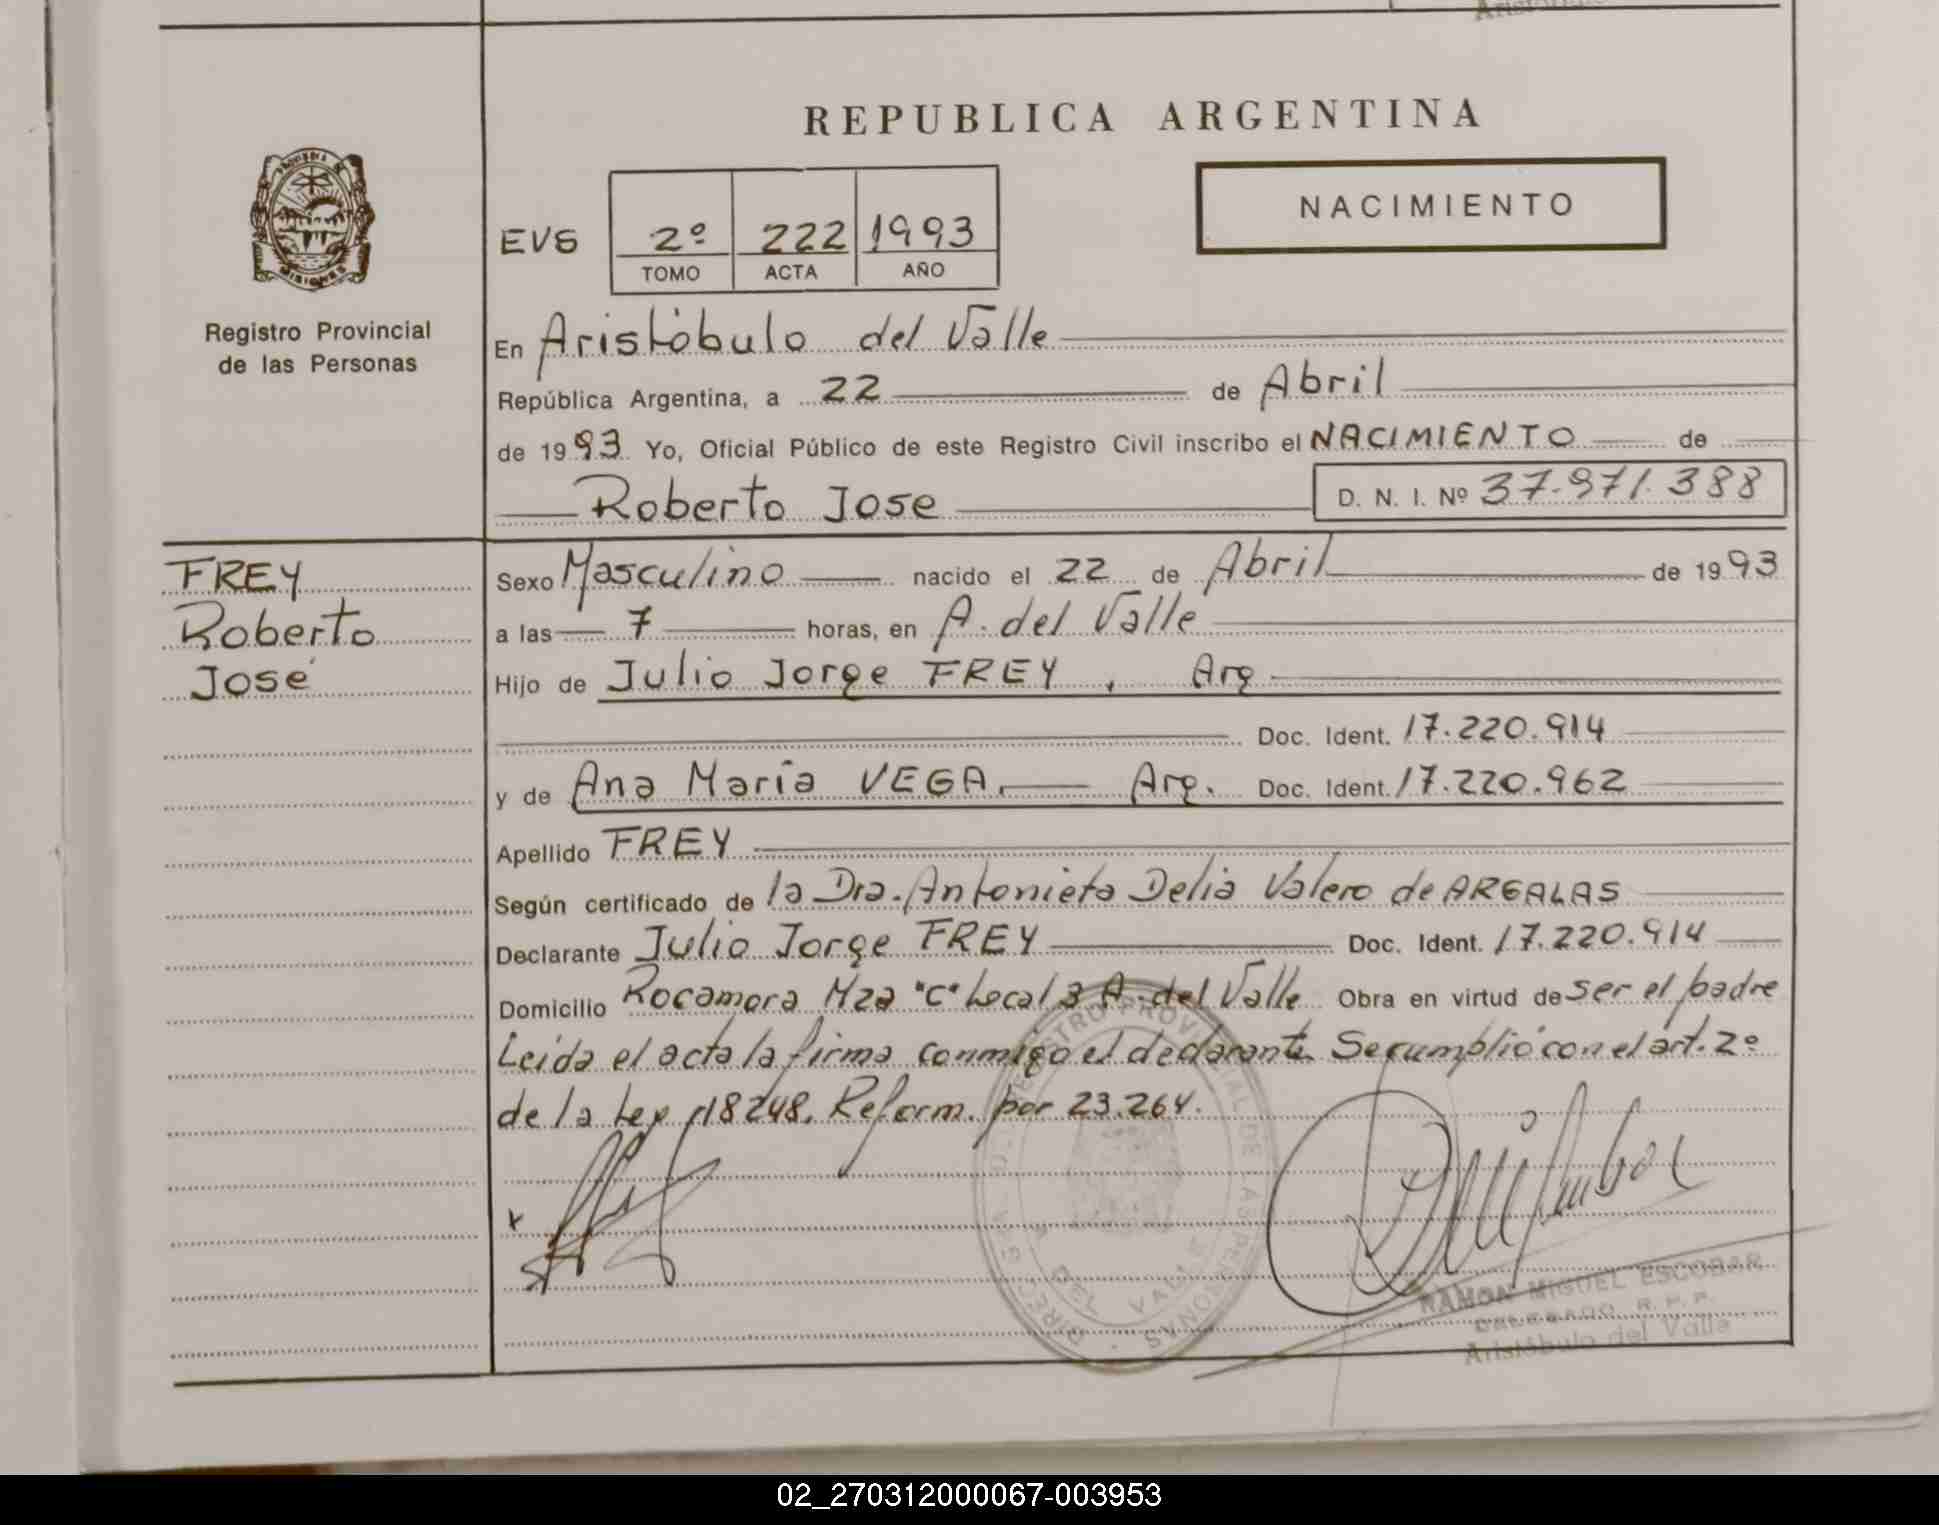 REPUBLICA ARGENTINA
NACIMIENTO
EVS 2º 222 1993
TOMO ACTA AÑO
MISIONES
Registro Provincial
de las Personas
En Aristóbulo del Valle
República Argentina, a 22 de Abril
de 1993 Yo, Oficial Público de este Registro Civil inscribo el NACIMIENTO de
Roberto Jose D. N. I. Nº 37.971.388
FREY
Roberto
José
Sexo Masculino nacido el 22 de Abril de 1993
a las 7 horas, en A. del Valle
Hijo de Julio Jorge FREY, Arg
Doc. Ident. 17.220.914
y de Ana María VEGA. Arg. Doc. Ident. 17.220.962
Apellido FREY
Según certificado de la Dra. Antonieta Delia Valero de ARGALAS
Declarante Julio Jorge FREY Doc. Ident. 17.220.914
Domicilio Rocamora Mza "C" Local 3 A. del Valle Obra en virtud de ser el padre
Leída el acta la firma conmigo el declarante. Se cumplió con el art. 2º
de la Ley 18248, Reform. por 23.264.
RAMON MIGUEL ESCOBAR
DELEGADO R. P. P.
Aristóbulo del Valle
02_270312000067-003953